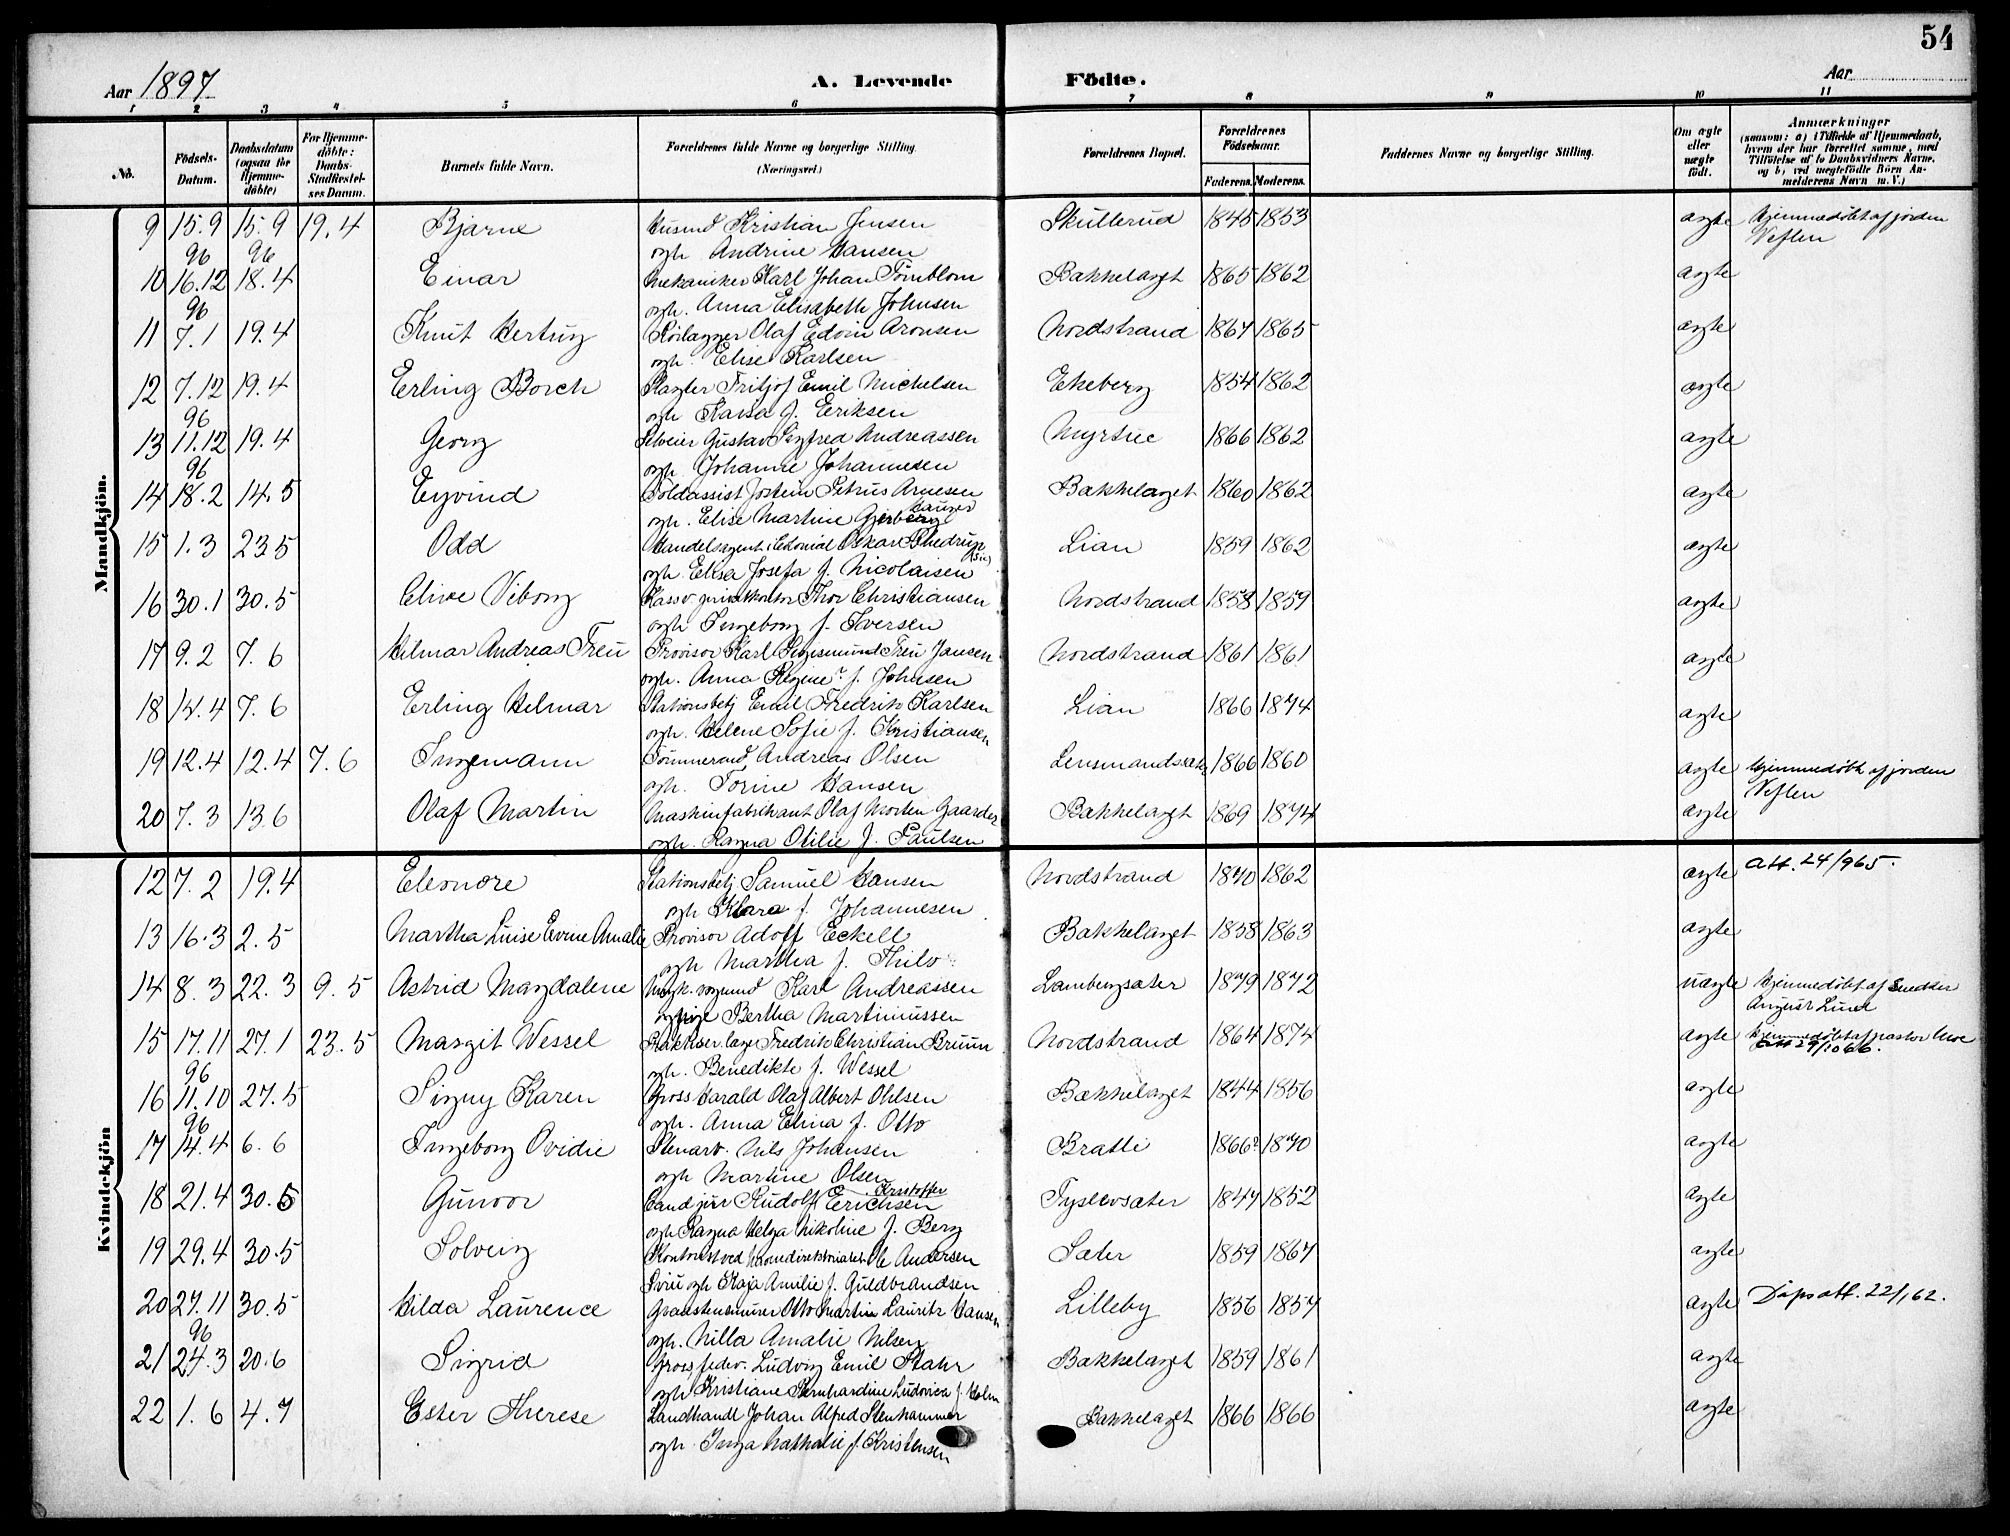 54
Aar 1897 A. Levende Födte. Aar
1 2 3 4 5 6 7 8 9 10 11
No. Födsels-Datum. Daabsdatum (ogsaa for Hjemme-döbte) For Hjemme-döbte: Daabs-Stadfæstel-ses Datum. Barnets fulde Navn. Forældrenes fulde Navne og borgerlige Stilling. (Næringsvei.) Forældrenes Bopæl. Forældrenes Födselsaar. Faderens. Moderens. Faddernes Navne og borgerlige Stilling. Om ægte eller uægte født. Anmærkninger (saasom: a) i Tilfælde af Hjemmedaab, hvem der har forrettet samme, med Tilföielse af to Daabsvidners Navne, og b) ved uegtefödte Börn Anmelderens Navn m. V.)
Mandkjön.
9 15.9 96 15.9 96 19.4 Bjarne Husmd Kristian Jensen Skullerud 1845 1853 ægte Hjemmedøbt af jordm
ogh. Andrine Hansen Veflen
10 16.12 96 18.4 Einar Mekaniker Karl Johan Törnblom Bækkelaget 1865 1862 ægte
ogh. Anna Elisabeth Johnsen
11 7.1 19.4 Knut Hertug Rörlægger Olaf Edvin Aronsen Nordstrand 1867 1865 ægte
ogh. Elise Karlsen
12 7.12 96 19.4 Erling Borch Slagter Fritjof Emil Michelsen Ekeberg 1854 1862 ægte
ogh. Kaisa f. Eriksen
13 11.12 96 19.4 Georg Selveier Gustav Sigfred Andreassen 1866 1862 ægte
ogh. Johanne Johannesen
14 18.2 14.5 Eyvind Toldassist Jostein Petrus Arnesen Bækkelaget 1860 1862 ægte
ogh. Elise Martine
15 1.3 23.5 Odd Handelsagent Oskar Lian 1859 1862 ægte
ogh. Elisa Josefa f. Nicolaisen
16 30.1 30.5 Viborg Thor Christiansen Nordstrand 1858 1859 ægte
ogh Ingeborg f. Iversen
17 9.2 7.6 Hilmar Andreas Treu Provisor Karl Sigismund Treu Jansen Nordstrand 1861 1861 ægte
ogh. Anna Regine f. Johnsen
18 12.4 7.6 Erling Helmar Stationsbetj Emil Fredrik Karlsen Lian 1866 1874 ægte
ogh. Helene Sofie f. Kristiansen
19 12.4 12.4 7.6 Ingemann Tömmermd Andreas Olsen 1866 1860 ægte Hjemmedöbt af jordm
ogh. Torine Hansen Veflen
20 7.3 13.6 Olaf Martin Maskinfabrikant Olaf Morten Gaarder Bækkelaget 1869 1874 ægte
ogh. Ragna Otilie f. Paulsen
Kvindekjön
12 7.2 19.4 Eleonore Stationsbetj Samuel Hansen Nordstrand 1870 1862 ægte att. 24/965.
ogh Klara f. Johannesen
13 16.3 2.5 Martha Luise Ervine Amalie Provisor Adolf Eckell Bækkelaget 1858 1863 ægte
ogh Martha f. Thilo
14 8.3 22.3 9.5 Astrid Magdalene Karl Andreassen Lambergsæter 1879 1872 uægte Hjemmedöbt af Snedker
Bertha Martinussen August Lund
15 17.11 96 27.1 23.5 Margit Wessel Fredrik Christian Bruun Nordstrand 1864 1874 ægte Hjemmedöbt af pastor Moe
ogh. Benedikte f. Wessel att 29/10 66.
16 11.10 96 27.5 Signy Karen Gross Harald Olaf Albert Ohlsen Bækkelaget 1844 1856 ægte
ogh. Anna Elina f. Otto
17 14.4 6.6 Ingeborg Ovidie Stenarb. Nils Johansen Bratli 1866? 1870 ægte
ogh Martine Olsen
18 21.4 30.5 Gunvor Cand jur Rudolf Kristoffer Erichsen 1847 1852 ægte
ogh Ragna Helga Nikoline f. Berg
19 29.4 30.5 Solveig Kontorist ved Havnedirektoriatet Ole Andersen Sæter 1859 1867 ægte
ogh Kaja Amilie f. Guldbrandsen
20 27.11 96 30.5 Hilda Laurence Graastensmurer Otto Martin Lauritz Hansen Lilleby 1856 1857 ægte Dåpsatt. 22/1 62.
ogh. Nilla Amalie Nilsen
21 24.3 20.6 Sigrid Gross Ludvig Emil Stahr Bækkelaget 1859 1861 ægte
ogh Kristiane Bernhardine Ludovica f. Holm
22 1.6 4.7 Ester Therese Landhandl Johan Alfred Stenhammer Bækkelaget 1866 1866 ægte
ogh. Inga Nathalie f. Kristensen